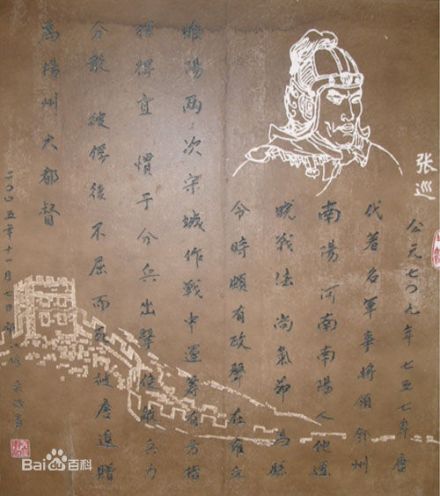 张巡
公元七〇九年七五七年唐
代著名军事将领邓州
南陽河南南陽人他通
晓战法尚气节为县
令时颇有政声在雍丘
睢陽两次守城作战中运筹有方指
挥得宜惯于分兵出击使敌兵力
分散被俘後不屈而死被唐追赠
為揚州大都督
二〇〇五年十一月七日
Bai百科